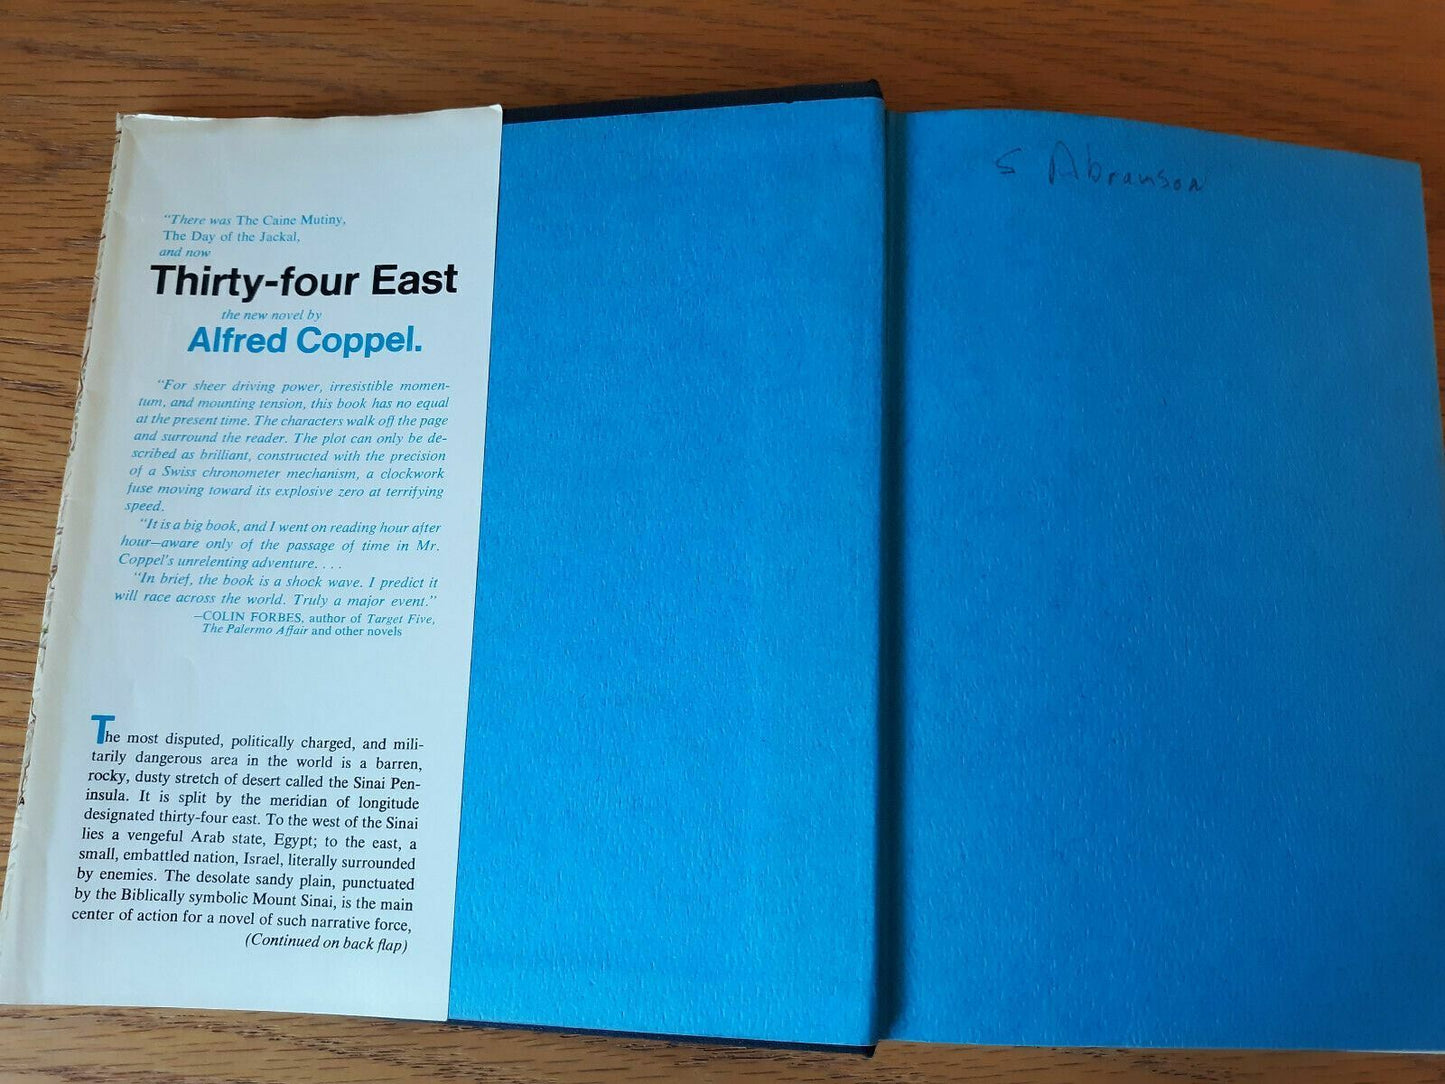 "There was The Caine Mutiny,
The Day of the Jackal,
and now
Thirty-four East
the new novel by
Alfred Coppel.
"For sheer driving power, irresistible momen-
tum, and mounting tension, this book has no equal
at the present time. The characters walk off the page
and surround the reader. The plot can only be de-
scribed as brilliant, constructed with the precision
of a Swiss chronometer mechanism, a clockwork
fuse moving toward its explosive zero at terrifying
speed.
"It is a big book, and I went on reading hour after
hour—aware only of the passage of time in Mr.
Coppel's unrelenting adventure. . . .
"In brief, the book is a shock wave. I predict it
will race across the world. Truly a major event."
—COLIN FORBES, author of Target Five,
The Palermo Affair and other novels
The most disputed, politically charged, and mili-
tarily dangerous area in the world is a barren,
rocky, dusty stretch of desert called the Sinai Pen-
insula. It is split by the meridian of longitude
designated thirty-four east. To the west of the Sinai
lies a vengeful Arab state, Egypt; to the east, a
small, embattled nation, Israel, literally surrounded
by enemies. The desolate sandy plain, punctuated
by the Biblically symbolic Mount Sinai, is the main
center of action for a novel of such narrative force,
(Continued on back flap)
S Abramson